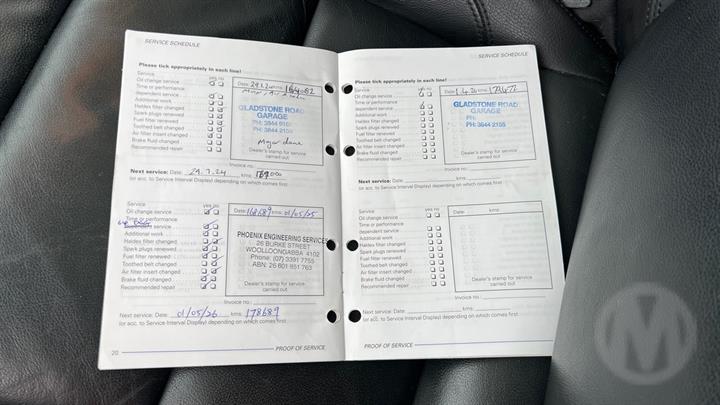 SERVICE SCHEDULE
Please tick appropriately in each line!
Service
yes no
Oil change service
Time or performance
dependent service
Additional work
Haldex filter changed
Spark plugs renewed
Fuel filter renewed
Toothed belt changed
Air filter insert changed
Brake fluid changed
Recommended repair
Date: kms:
GLADSTONE ROAD
GARAGE
PH: 3844
PH: 3844 2155
Major done
Dealer's stamp for service
carried out
Invoice no.:
Next service: Date: 29.7.24 kms:
(or acc. to Service Interval Display) depending on which comes first
Service
yes no
Oil change service
Time or performance
dependent service
Additional work
Haldex filter changed
Spark plugs renewed
Fuel filter renewed
Toothed belt changed
Air filter insert changed
Brake fluid changed
Recommended repair
Date: 168689 kms: 01/05/25
PHOENIX ENGINEERING SERVICES
26 BURKE STREET
WOOLLOONGABBA 4102
Phone: (07) 3391 7755
ABN: 26 601 851 763
Dealer's stamp for service
carried out
Invoice no.:
Next service: Date: 01/05/26 kms: 178689
(or acc. to Service Interval Display) depending on which comes first
20
PROOF OF SERVICE
SERVICE SCHEDULE
Please tick appropriately in each line!
Service
yes no
Oil change service
Time or performance
dependent service
Additional work
Haldex filter changed
Spark plugs renewed
Fuel filter renewed
Toothed belt changed
Air filter insert changed
Brake fluid changed
Recommended repair
Date: kms:
GLADSTONE ROAD
GARAGE
PH:
PH: 3844 2155
Dealer's stamp for service
carried out
Invoice no.:
Next service: Date: kms:
(or acc. to Service Interval Display) depending on which comes first
Service
yes no
Oil change service
Time or performance
dependent service
Additional work
Haldex filter changed
Spark plugs renewed
Fuel filter renewed
Toothed belt changed
Air filter insert changed
Brake fluid changed
Recommended repair
Date: kms:
Dealer's stamp for service
carried out
Invoice no.:
Next service: Date: kms:
(or acc. to Service Interval Display) depending on which comes first
PROOF OF SERVICE
M